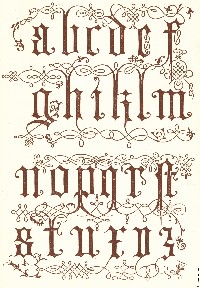 a b c d e f
g h i k l m
n o p q r ſ t
s t u x v z